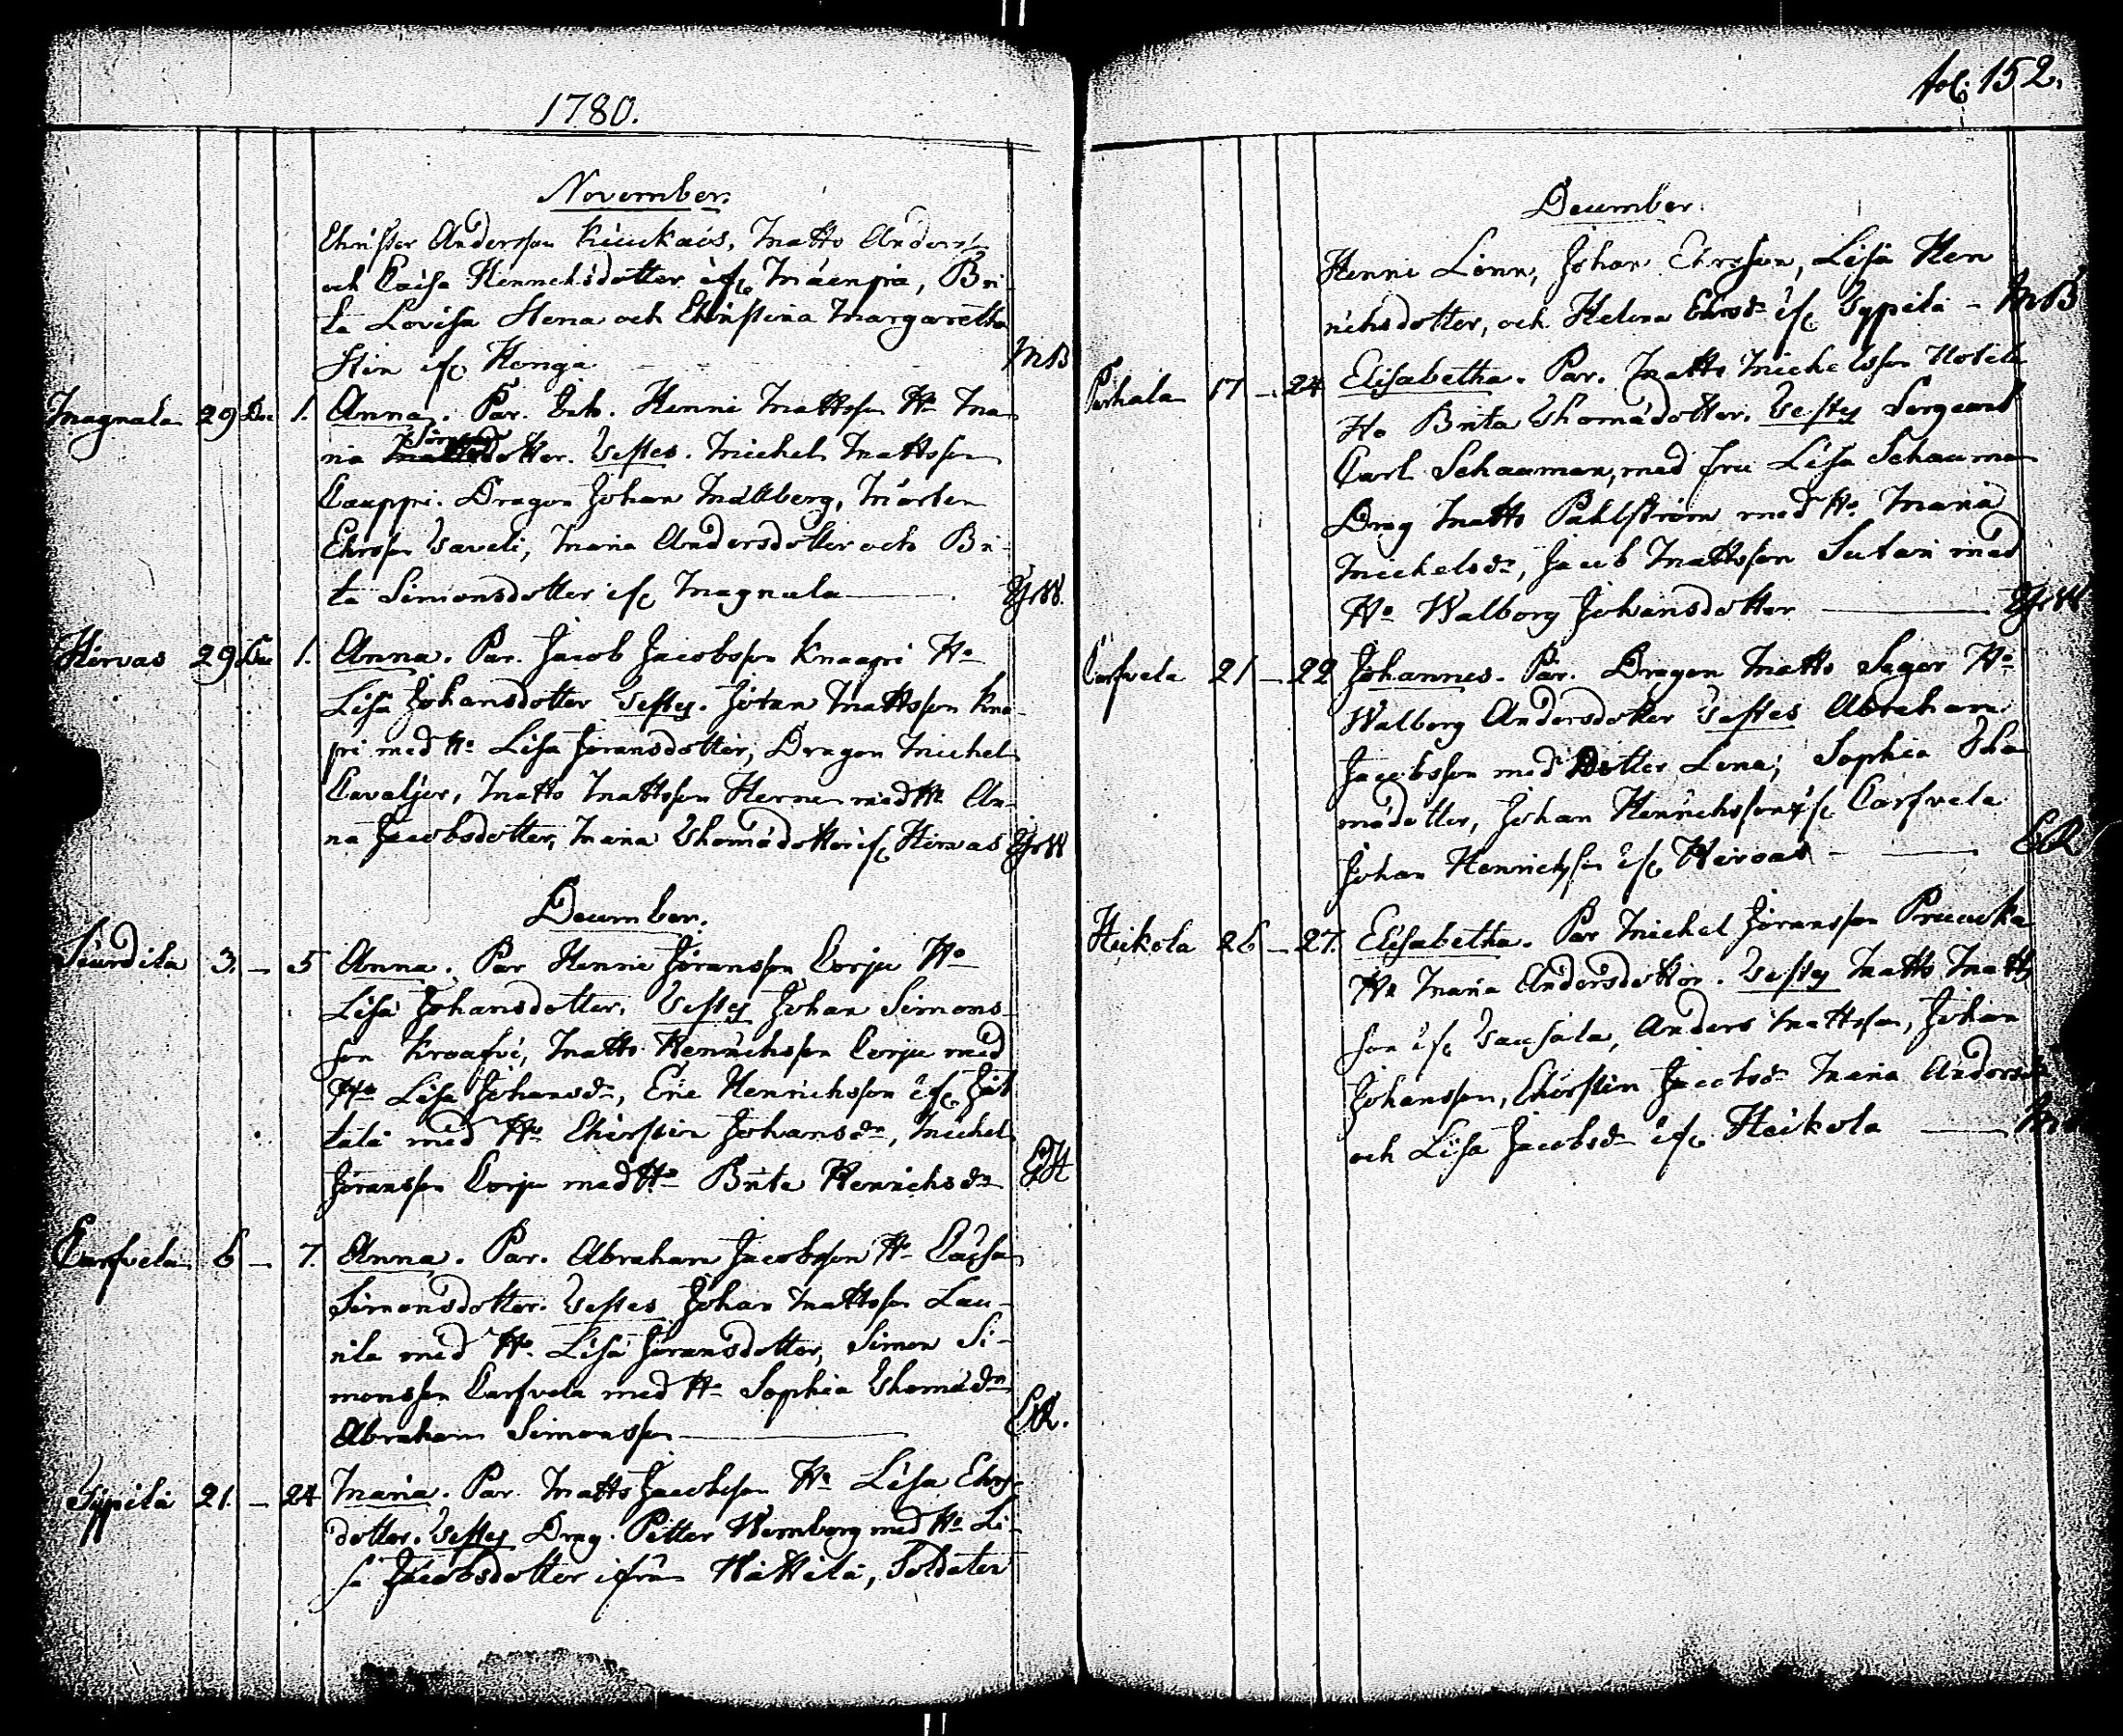 1780.
November.
Christer Andersson Kiuckais, Matts Anders
och Caisa Henrichsdotter if: Mäenpää, Bri-
ta Lovisa Hena och Christina Margaretha
Hin if: Honga MB
Magnula 29 Dec 1. Anna. Par. Enk. Henric Mattsson Ho Ma
ria Jörans dotter. Testes. Michel Mattsson
Cauppi. Dragon Johan Mällberg, Mårten
Ehrsson Taveli, Maria Andersdotter och Bri-
ta Simonsdotter if: Magnula
Hirvas 29 Dec 1. Anna. Par. Jacob Jacobsson Knaapi Ho
Lisa Johansdotter Testes. Jöran Mattsson Kna-
pi med Ho Lisa Jöransdotter, Dragon Michel
Cavaljer, Matts Mattsson Herne med Ho An-
na Jacobsdotter, Maria Thomädotter if: Hirvas
December.
Siurdila 3. – 5 Anna. Par Henric Jöransson Corju Ho
Lisa Johansdotter. Testes Johan Simons-
son Kroafvi, Matts Henrichsson Corju med
Ho Lisa Johansdr, Eric Henrichsson if: Jät
tälä med Ho Chirstin Johansdr, Michel
Jöransson Corju med Ho Brita Henrichsdr
Carfvela 6 – 7. Anna. Par. Abraham Jacobsson Ho Caisa
Simonsdotter. Testes Johan Mattsson Lau-
nila med Ho. Lisa Jöransdotter, Simon Si-
monsson Carfvela med Ho Sophia Thomädr
Abraham Simonsson ER.
Sypilä 21. – 24 Maria. Par. Matts Jacobsson Ho Lisa Ehrs-
dotter. Testes Drag. Petter Wernberg med Ho Li-
sa Jacobsdotter ifrån Hättilä, Soldaten
fol. 152.
December.
Henric Lönn, Johan Ehrsson, Lisa Hen
richsdotter, och Helena Ehrsdr if: Sypilä – MB
Perhala 17 – 24 Elisabetha. Par. Matts Michelsson Hotila
Ho Brita Thomädotter. Testes Sergeant
Carl Schauman, med fru Lisa Schauman
Drag Matts Pahlström med Ho. Maria
Michelsdr, Jacob Mattsson Sutari med
Ho Walborg Johansdotter
Carfvela 21 – 22 Johannes. Par. Dragon Matts Sager Ho
Walborg Andersdotter Testes Abraham
Jacobsson med Dotter Lena, Sophia Tho
mädotter, Johan Henrichsson if: Carfvela
Johan Henrichsson if: Hirvas – ER
Heikola 26 – 27. Elisabetha. Par Michel Jöransson Pruuka
Ho Maria Andersdotter. Testes Matts Matts
son if: Tausala, Anders Mattsson, Johan
Johansson, Chirstin Jacobsdr Maria Andersdr
och Lisa Jacobsdr if: Heikola